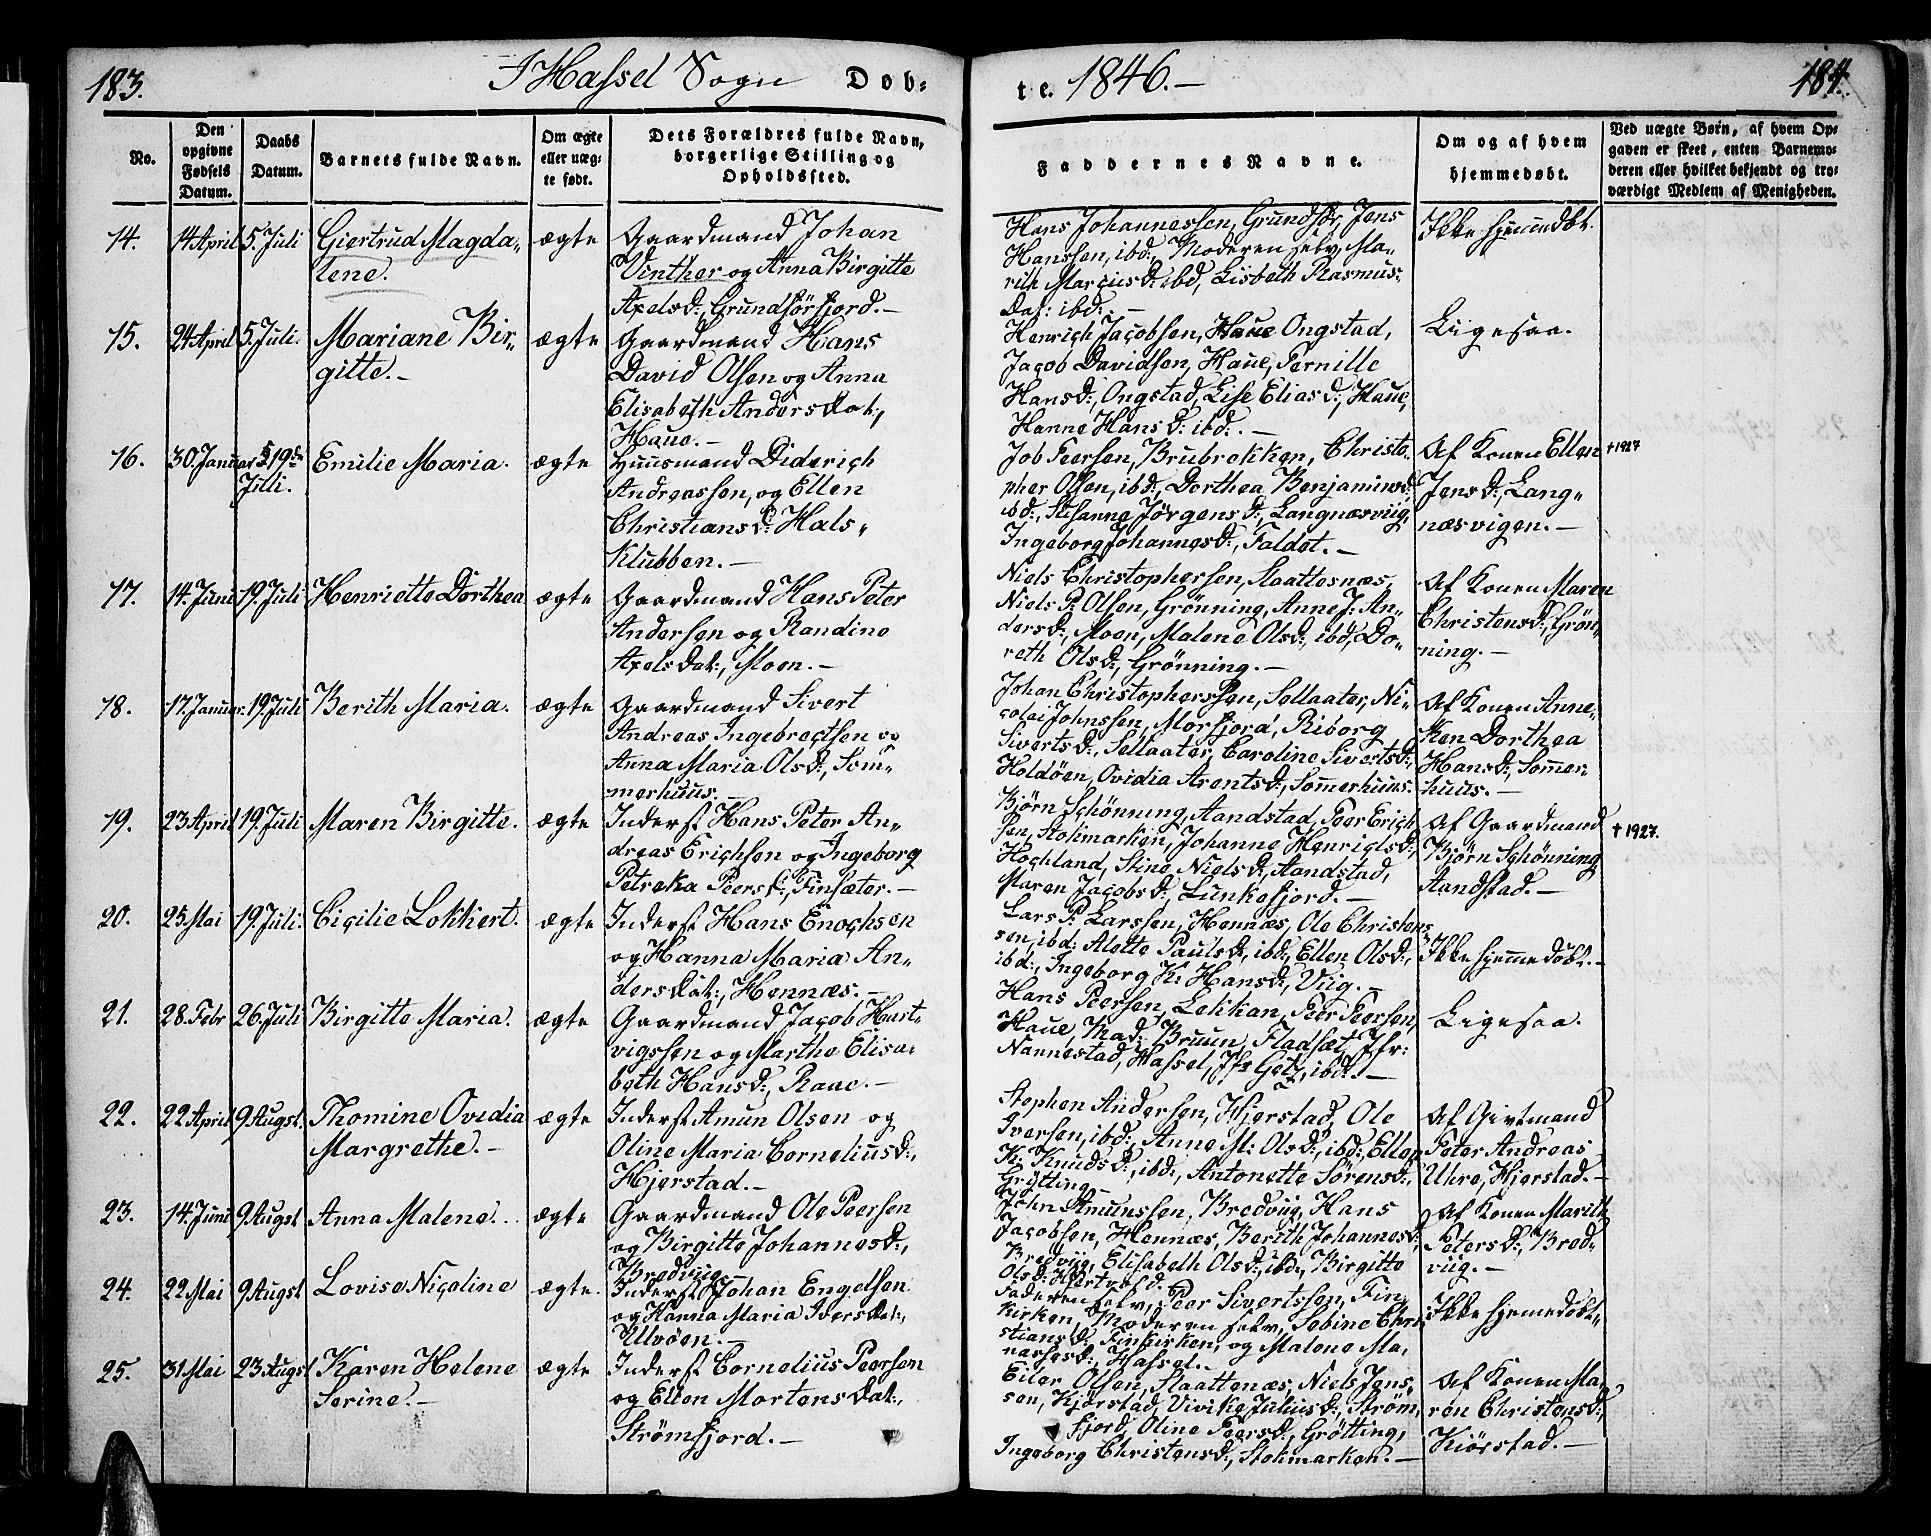 183.
I Hassel Sogn Døb-
te. 1846.-
184.
No.
Den opgivne Fødsels Datum.
Daabs Datum.
Barnets fulde Navn.
Om ægte eller uæg-
te født.
Dets Forældres fulde Navn,
borgerlige Stilling og
Opholdssted.
Faddernes Navne.
Om og af hvem
hjemmedøbt.
Ved uægte Børn, af hvem Op-
gaven er skeet, enten Barnemo-
deren eller hvilket bekjendt og tro-
værdigt Medlem af Menigheden.
14. 14 April 5. Juli Giertrud Magda-
lene. ægte
Gaardmand Johan
Vinther og Anna Birgitte
Axelsd:, Grundførfjord.-
Hans Johannessen, Grundfør, Jens
Hanssen, ibd:, Moderen selv, Ma-
rith Marciusd: ibd, Lisbeth Rasmus-
Dat: ibd:.-
Ikke hjemmedøbt.
15. 24 April 5. Juli. Mariane Bir-
gitte.- ægte
Gaardmand Hans
David Olsen og Anna
Elisabeth Andersdat:,
Haue.-
Henrich Jacobsen, Haue Ongstad,
Jacob Davidsen, Haue, Pernille
Hansd:, Ongstad, Lise Eliasd:, Haue,
Hanne Hansd: ibd:.-
Ligesaa.
16. 30. Januar 19de
Juli. Emilie Maria. ægte
Huusmand Diderich
Andreassen, og Ellen
Christiansd: Hals-
Klubben.-
Job Peersen, Brubrekken, Christo-
pher Olsen, ibd:, Dorthea Benjaminsd:
ibd:, Susanne Jørgensd:, Langnæsviig,
Ingeborg Johannesd:, Faldet.-
Af Konen Ellen
Jensd:, Lang-
næsvigen.-
† 1927
17. 14. Juni 19. Juli Henriette Dorthea ægte
Gaardmand Hans Peter
Andersen og Randine
Axelsdat:, Moen.-
Niels Christophersen, Slaattesnæs,
Niels P: Olsen, Grønning, Anne J: An-
dersd:, Moen, Malene Olsd:, ibd, Do-
reth Olsd:, Grønning.-
Af Konen Maren
Christensd:, Grøn-
ning.-
18. 17. Januar. 19. Juli Berith Maria. ægte
Gaardmand Sivert
Andreas Ingebregtsen og
Anna Maria Olsd:, Som-
merhuus.-
Johan Christophersen, Sellaater, Ni-
colai Johnssen, Morfjord, Riborg
Sivertsd:, Sellaater, Caroline Sivertsd:,
Holdøen, Ovidia Arentsd:, Sommerhuus.
Af Konen Anne-
Ken Dorthea
Hansd:, Sommer-
huus.-
19. 23 April 19. Juli Maren Birgitte. ægte
Inderst Hans Peter An-
dreas Erichsen og Ingeborg
Petreka Peersd:, Finsæter.-
Bjørn Schønning, Aandstad, Peer Erich-
sen, Stokmarken, Johanne Henrichsd:,
Hochland, Stine Nielsd:, Aandstad,
Maren Jacobsd:, Lunkefjord.-
Af Gaardmand
Bjørn Schønning
Aandstad.-
† 1927.
20. 25 Mai 19. Juli. Cicilie Lokkert. ægte
Inderst Hans Enochsen
og Hanna Maria An-
dersdat:, Hennæs.-
Lars P: Larssen, Hennæs, Ole Christen-
sen, ibd: Alette Paulsd:, ibd:, Ellen Olsd:,
ibd:, Ingeborg K: Hansd:, Viig.-
Ikke hjemmedøbt.-
21. 28. Febr 26. Juli Birgitte Maria. ægte
Gaardmand Jacob Hart-
vigssen og Marthe Elisa-
beth Hansd:, Raue.-
Hans Peersen, Lekkan, Peer Peersen,
Haue, Mad: Bruun, Fladsæt, Jfr:
Nannestad, Hassel, Jfr Getz, ibd:.-
Ligesaa.
22. 22 April 9 Augst. Thomine Ovidia
Margrethe.- ægte
Inderst Amun Olsen og
Oline Maria Corneliusd:,
Hjerstad.-
Stephen Andersen, Hjerstad, Ole
Iversen, ibd:, Anne M: Olsd:, ibd:, Ellen
K: Knudsd:, ibd:, Antonette Sørensd:,
Grytting.-
Af Givtmand
Peter Andreas
Uhre, Hjerstad.-
23. 14. Juni 9 Augst Anna Malene. ægte
Gaardmand Ole Peersen
og Birgitte Johannesd:,
Bredviig.
John Amunssen, Bredviig, Hans
Jacobsen, Hennæs, Berith Johannesd:,
Bredviig, Elisabeth Olsd:, ibd:, Birgitte
Olsd:
Af Konen Marith
Petersd:, Bred-
viig.-
24. 22 Mai 9 Augst Lovise Nicoline ægte.
Inderst Johan Engelsen
og Hanna Maria Iversdat:,
Ulvøen.-
Faderen selv, Peer Sivertssen, Fin-
kirken, Moderen selv, Sebine Chri-
stiansd:, Finkirken, og Malene Ma-
Hassel.-
Ikke hjemmedøbt.-
25. 31 Mai 23 Augst Karen Helene
Serine.- ægte
Inderst Cornelius Peersen
og Ellen Mortensdat:,
Strømfjord.-
Eiler Olsen, Slaattenæs, Niels Jens-
sen, Kjørstad, Vivike Juliusd:, Strøm-
fjord, Oline Peersd:, Grøtting,
Ingeborg Christensd:, Stokmarken.-
Af Konen Ma-
ren Christensd:,
Kiørstad.-